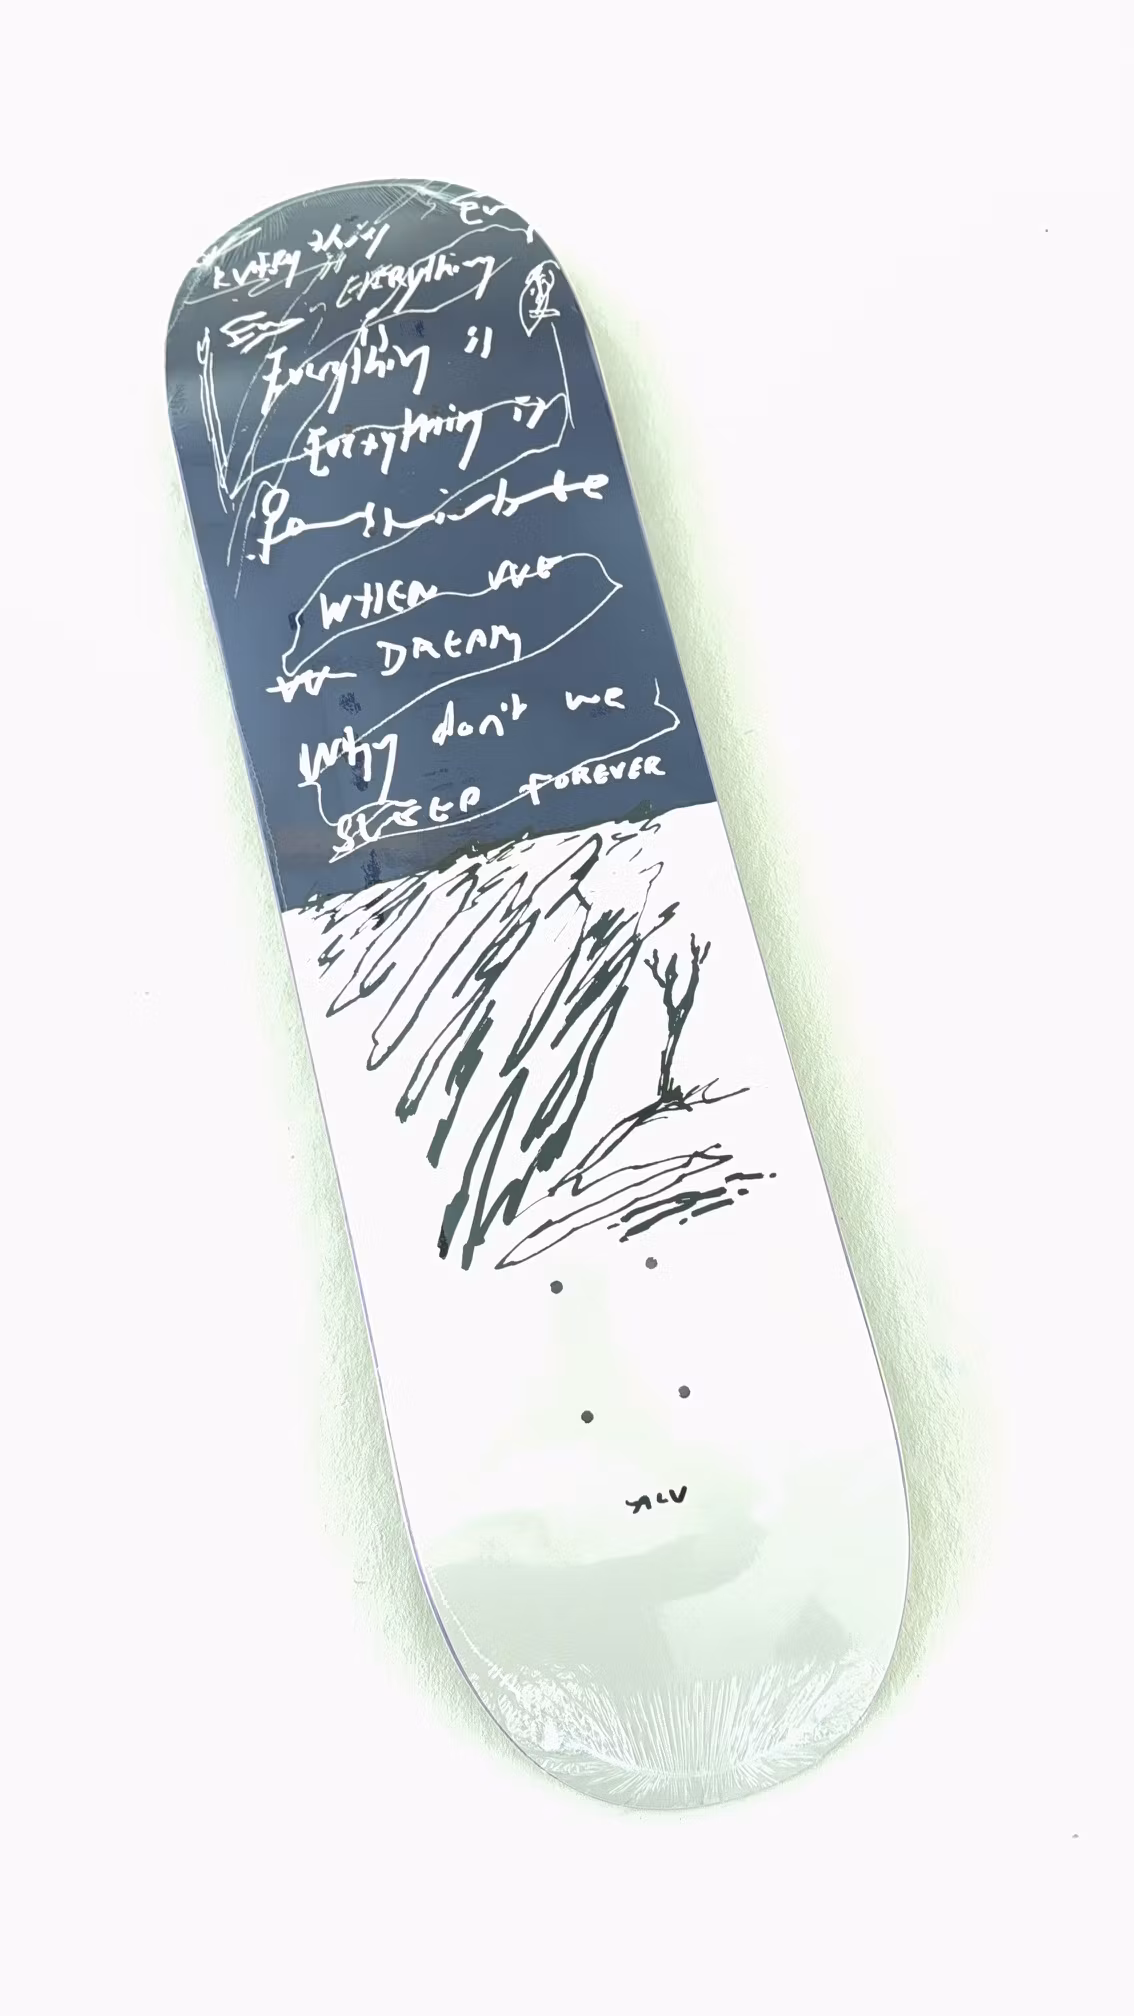 Ev
Everything
Everything
is
Everything is
Everything is
Possible
WHEN WE
DREAM
Why don't we
SLEEP FOREVER